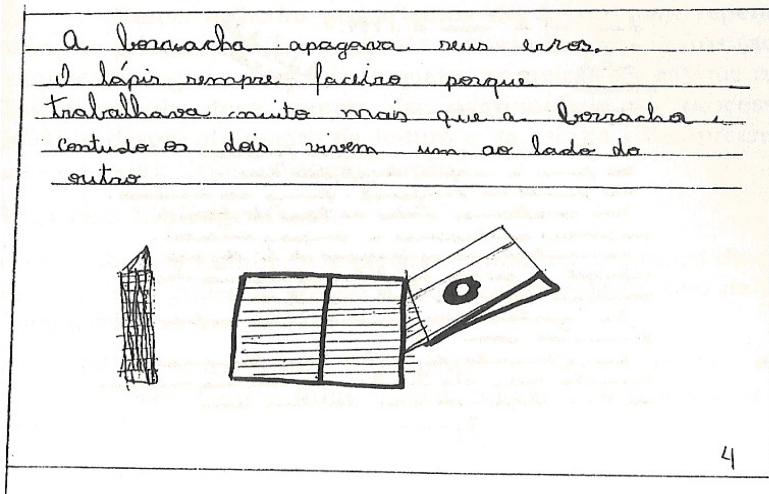 A borracha apagava seus erros.
O lápis sempre faceiro porque
trabalhava muito mais que a borracha,
contudo os dois vivem um ao lado do
outro
4